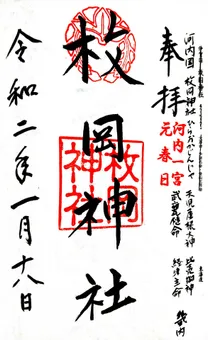 奉拝
河内国 枚岡神社 ひらおかじんじゃ
河内一宮
元春日
天児屋根大神
比売御神
経津主命
武甕槌命
枚岡神社
枚岡
神社
令和二年一月十八日